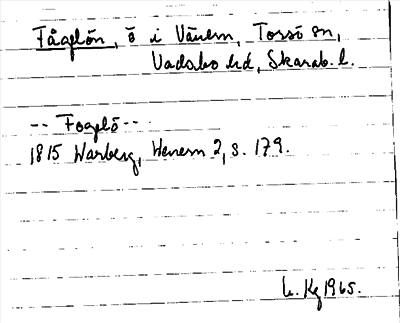 Fågelön, ö i Vänern, Torsö sn,
Vadsbo hd, Skarab. l.
-- Fogelö --
1815 Warberg, Wenern 2, s. 179.
1965.